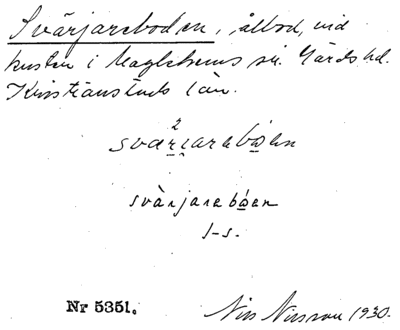 Svärjareboden, ålbod, vid
kusten i Maglehems sn. Gärds hd.
Kristianstads län.
2
sværjarebøen
svàrjarebøen
s-s.
Nr 5351.
Nils Nilsson 1930.